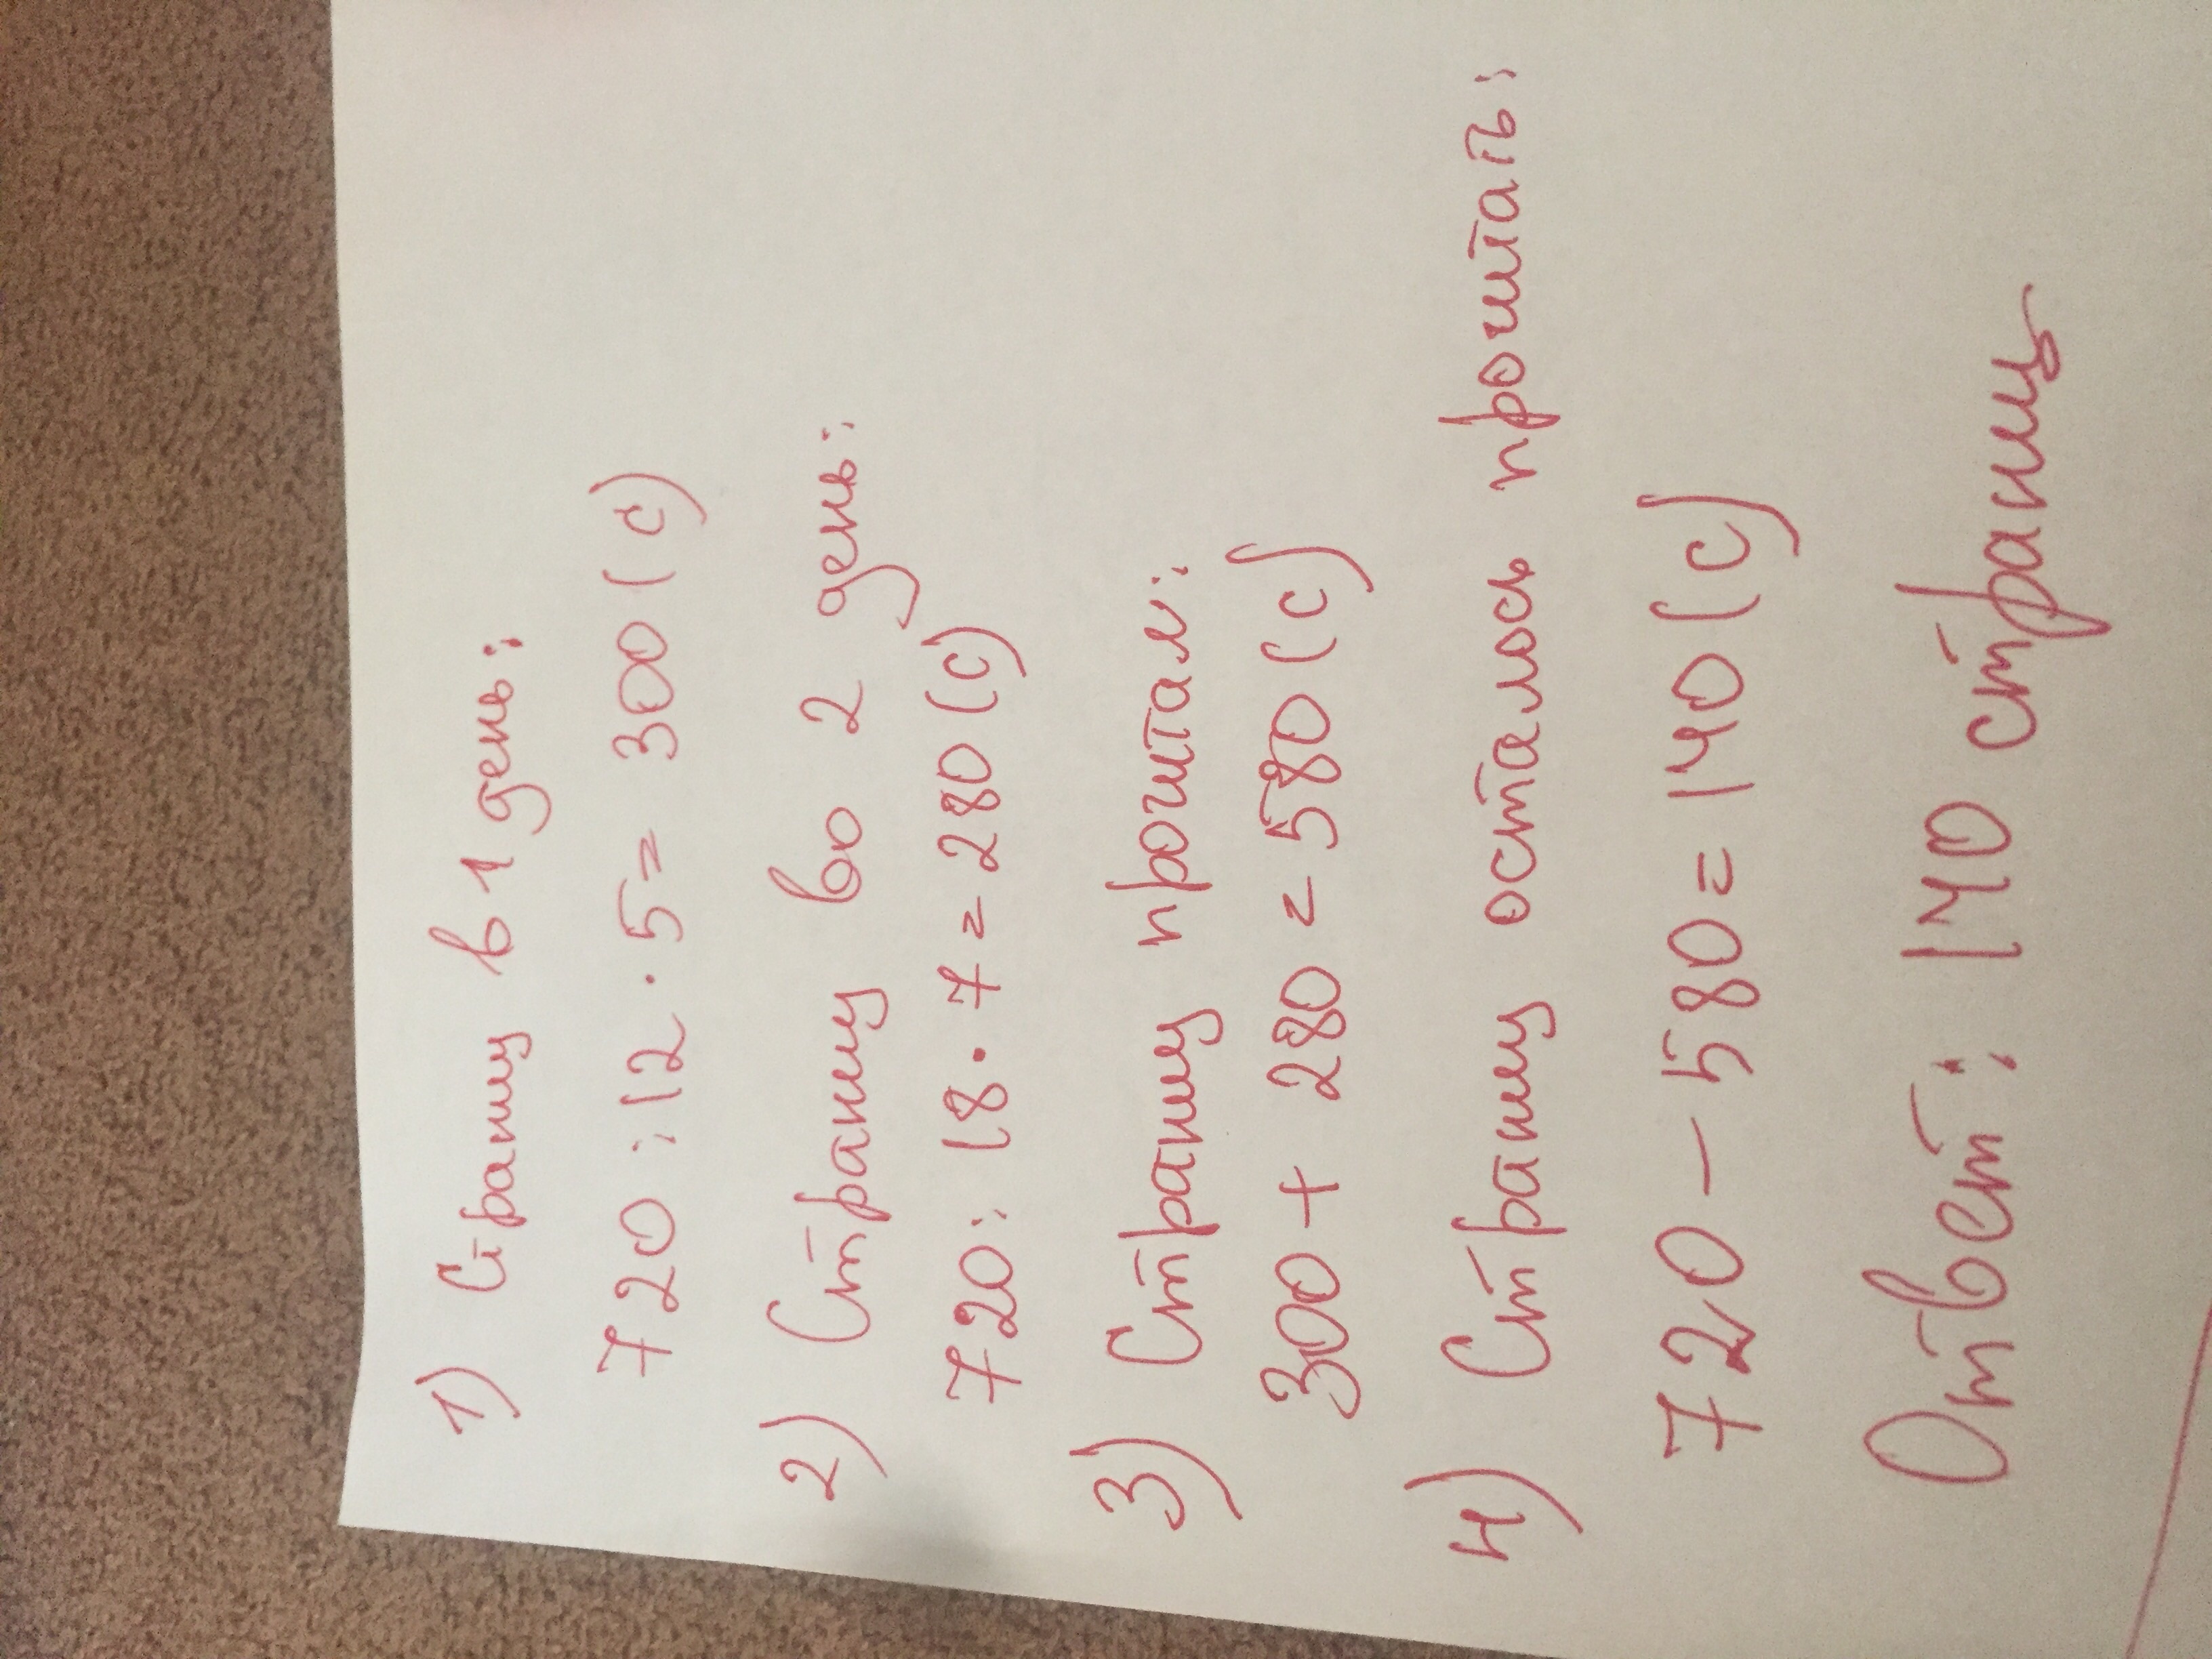 1) Страниц в 1 день:
720 : 12 · 5 = 300 (с)
2) Страниц во 2 день:
720 : 18 · 7 = 280 (с)
3) Страниц прочитал:
300 + 280 = 580 (с)
4) Страниц осталось прочитать:
720 - 580 = 140 (с)
Ответ: 140 страниц